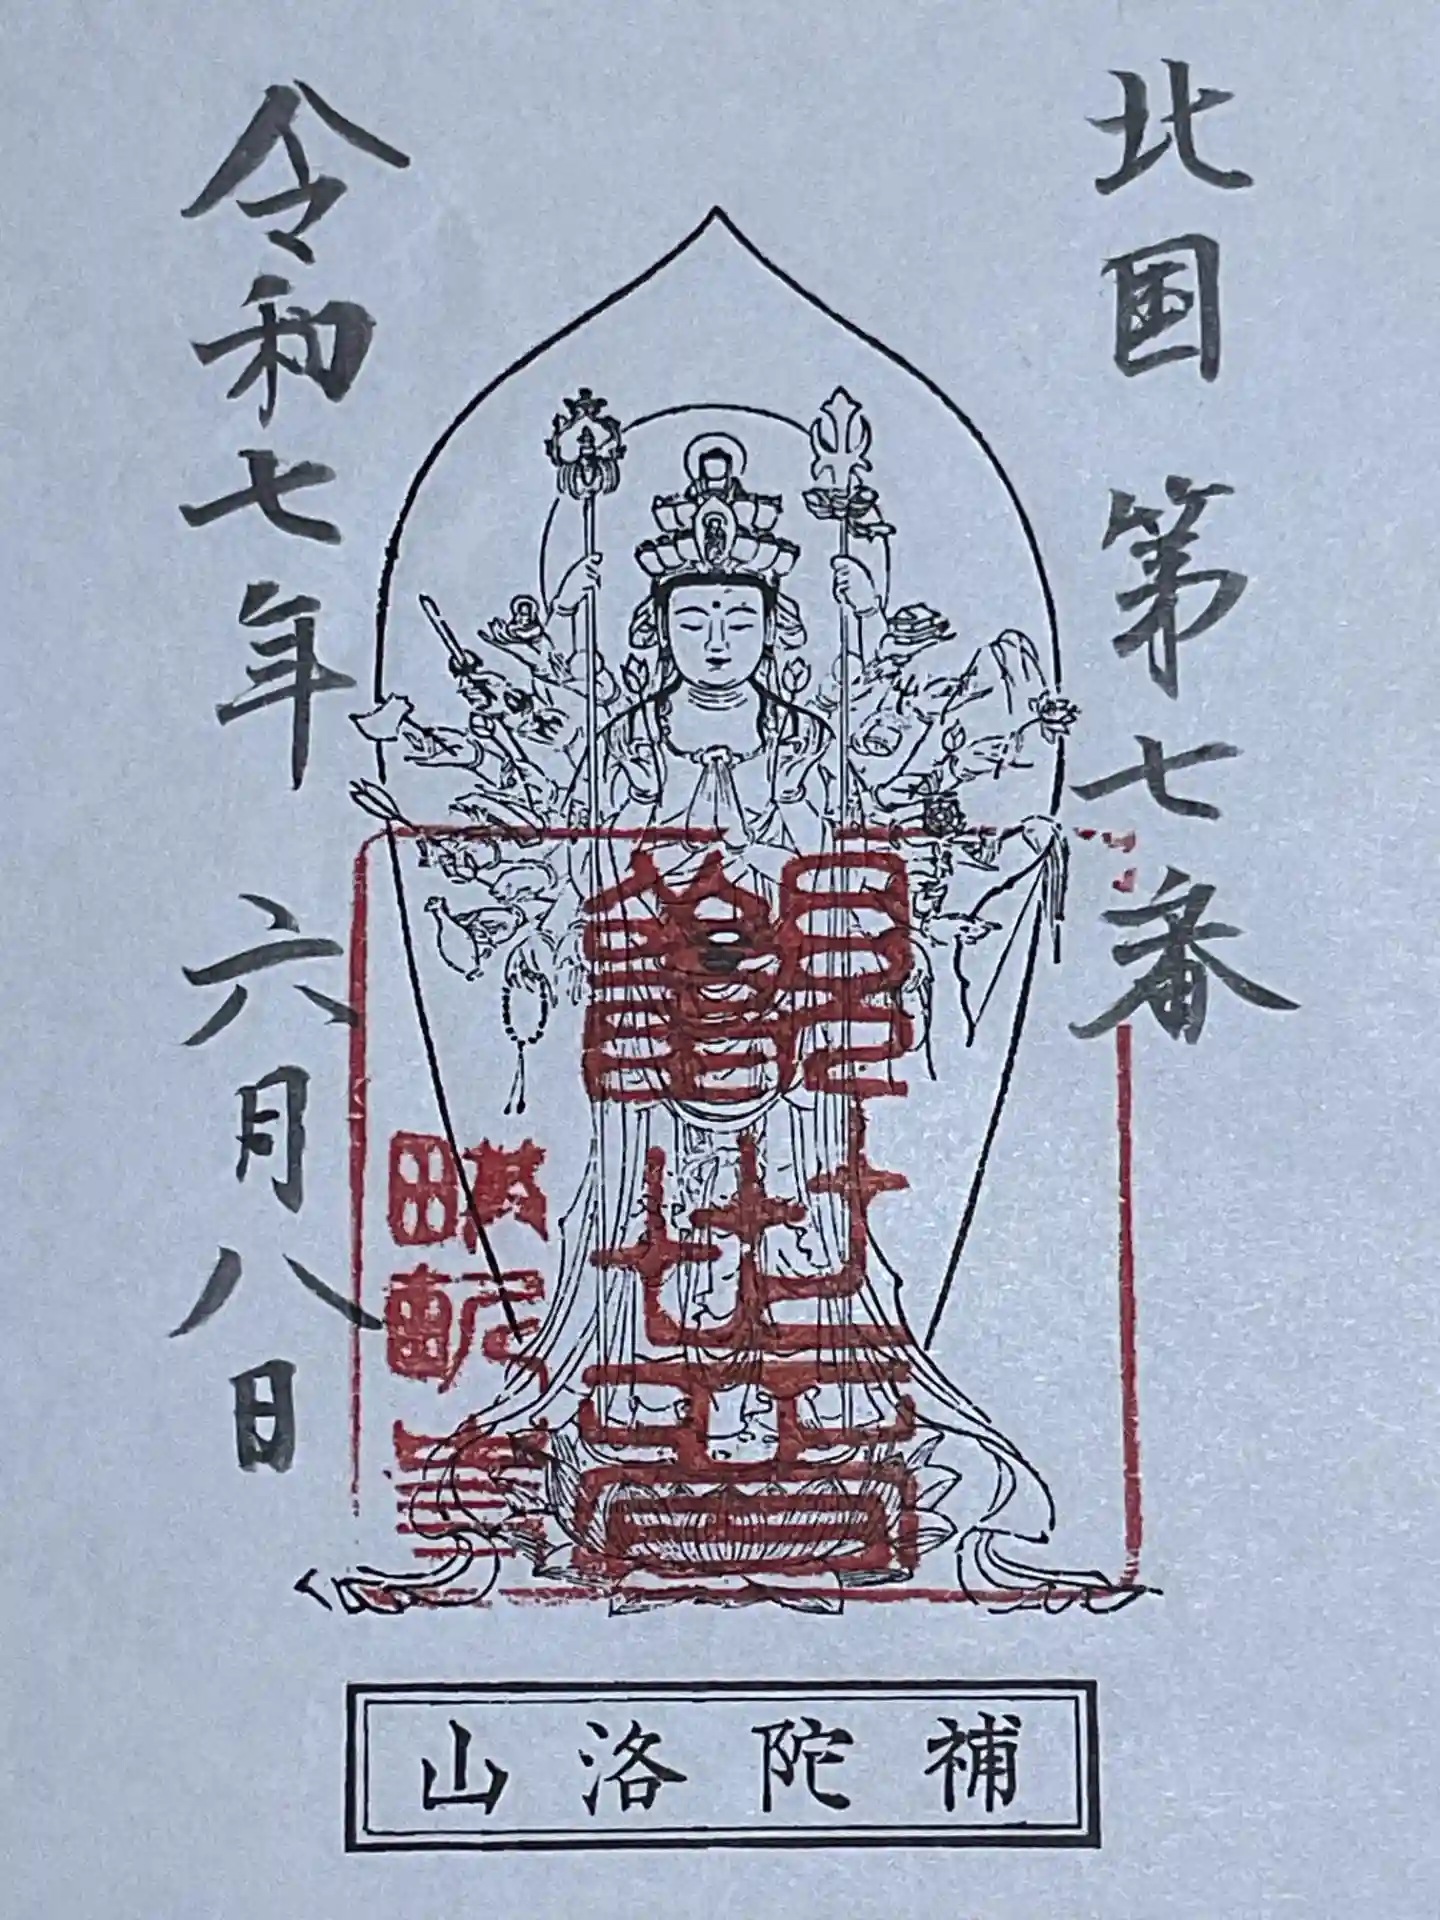 北国 第七番
令和七年 六月 八日
補陀洛山